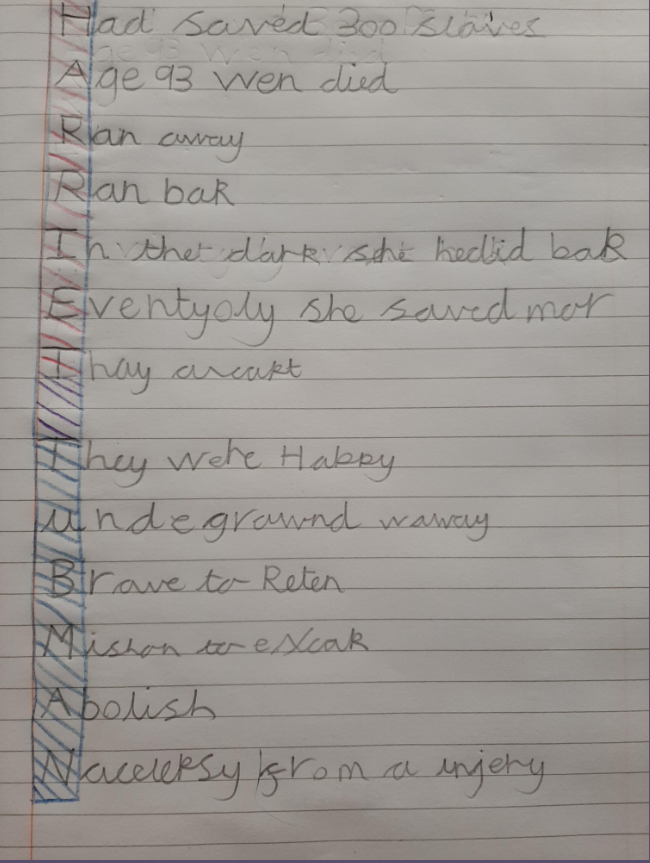 Had saved 300 slaves
Age 93 wen died
Ran away
Ran bak
In the dark she hedid bak
Eventyoly she saved mor
Thay arcart
They were Habby
undegrawnd waway
Brave to Reten
Mishon to eXcak
Abolish
Nacelepsy from a injery